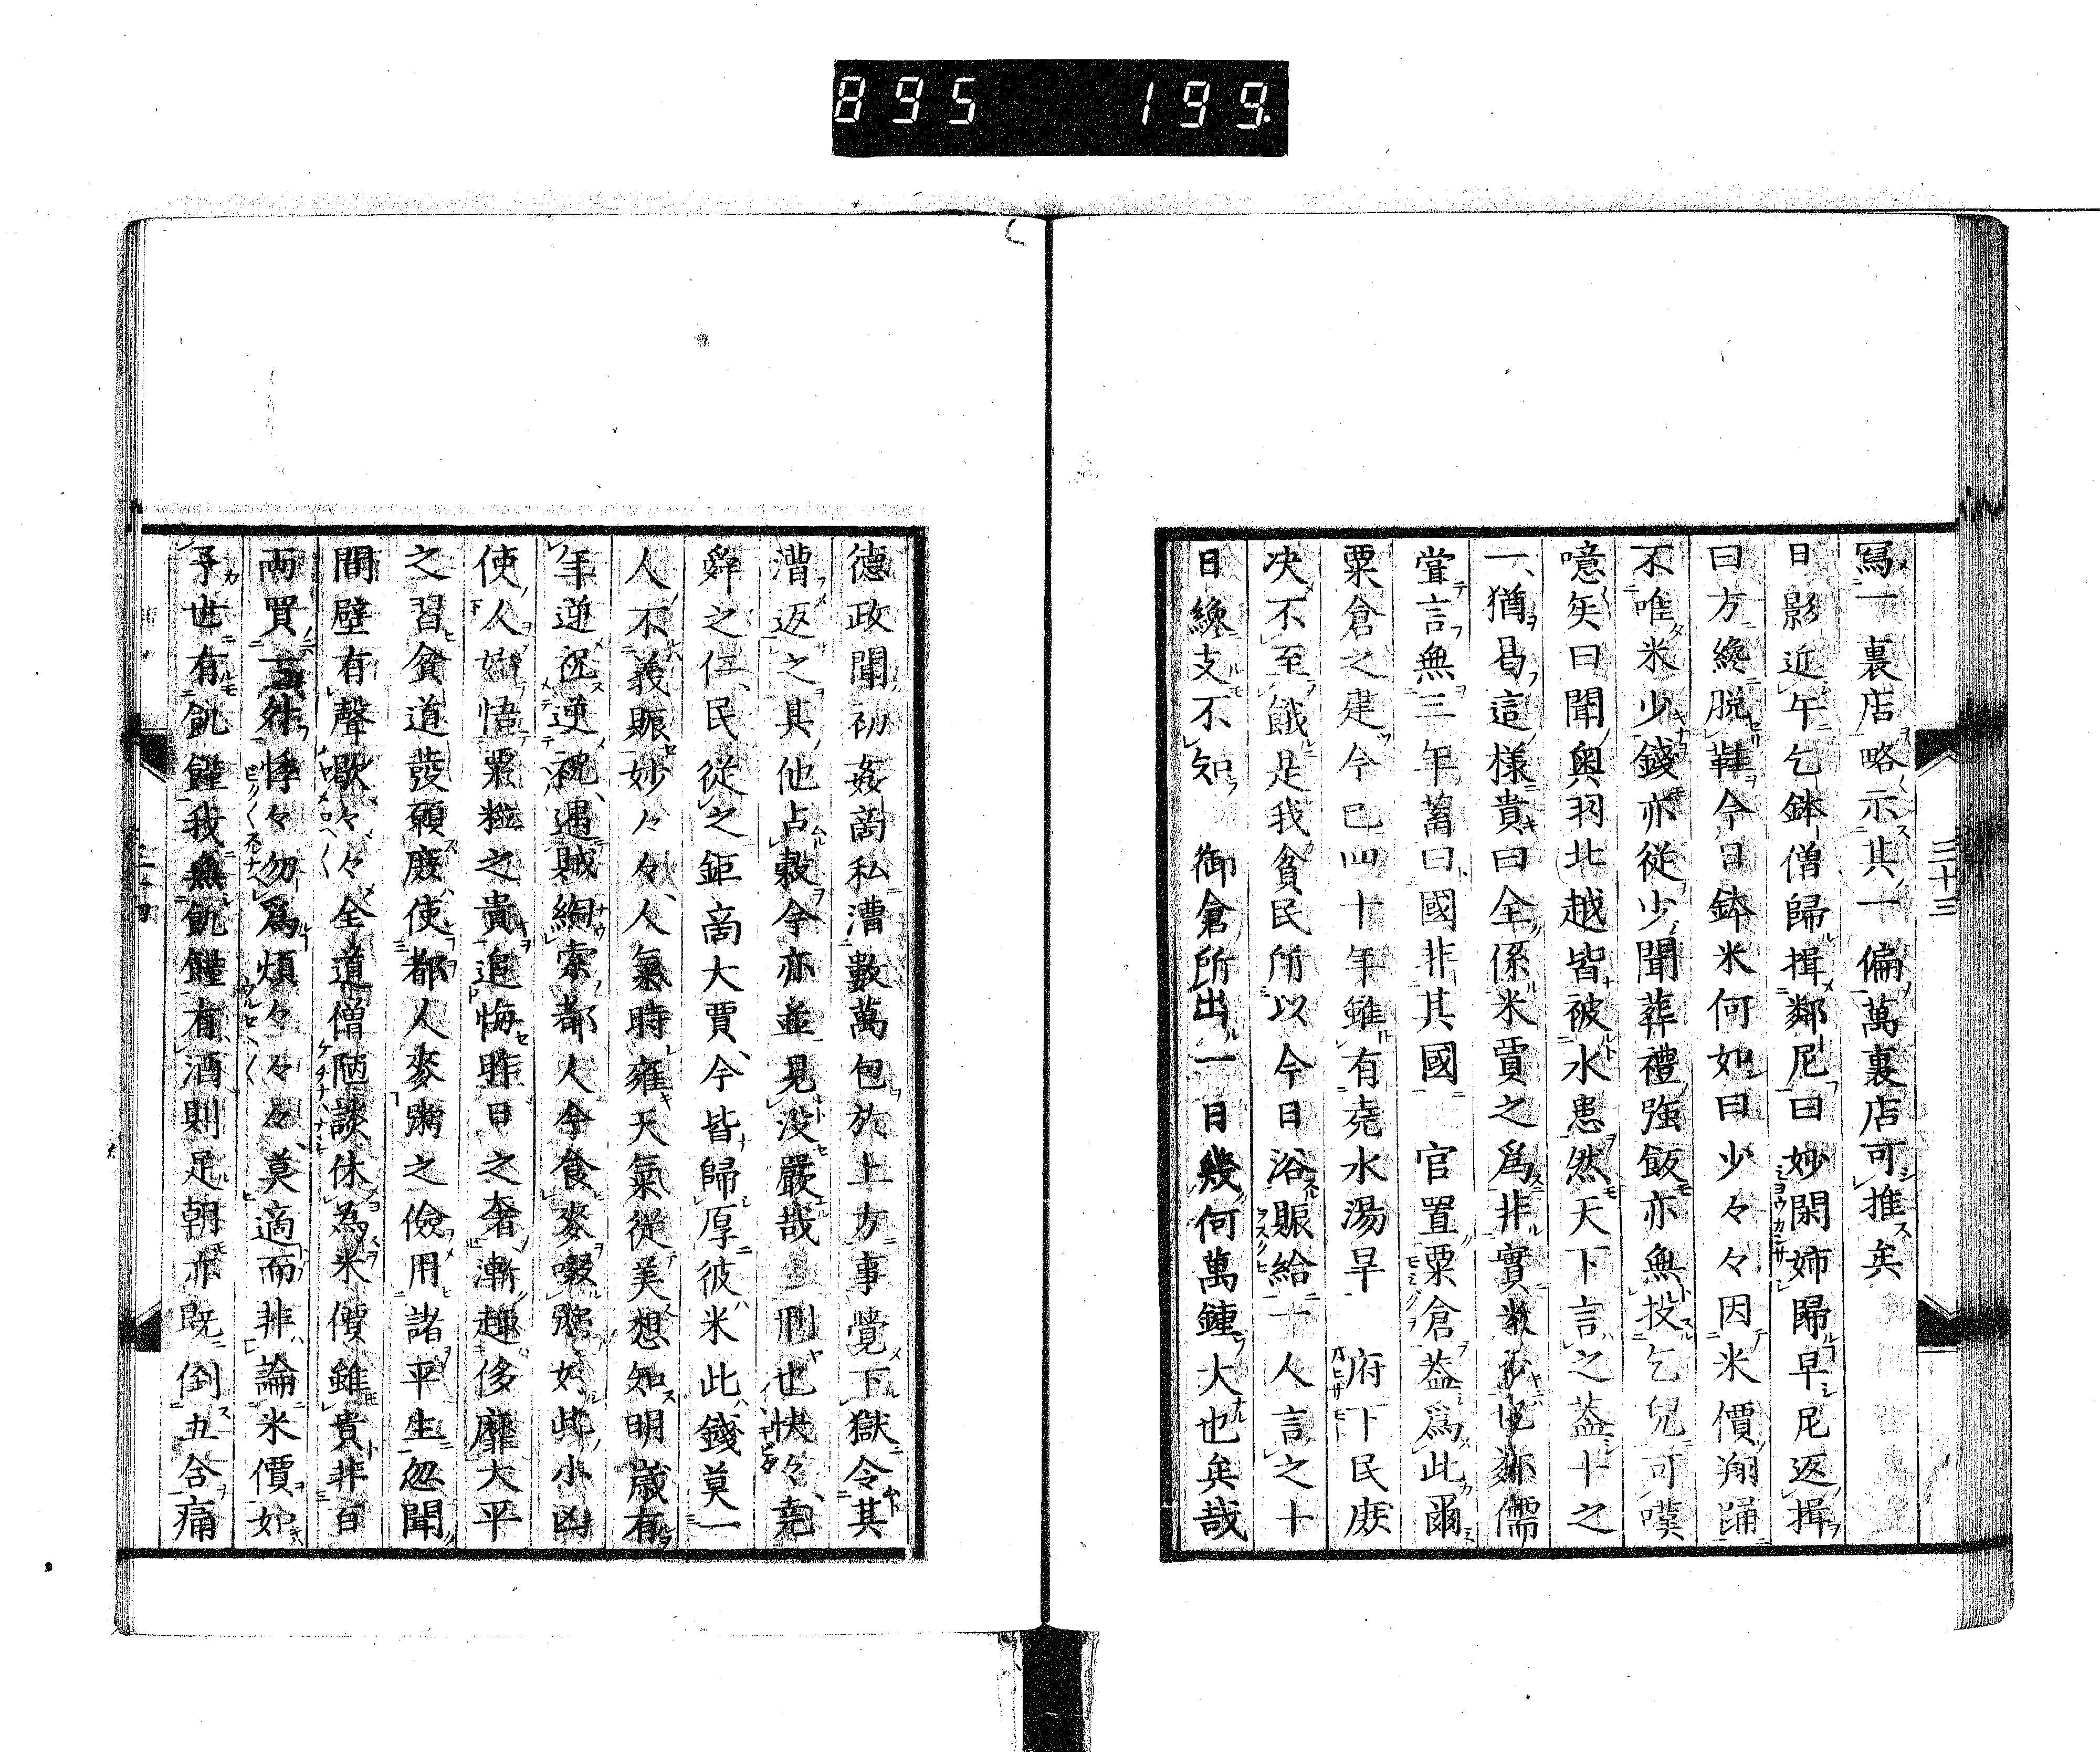 895 199.
三十三
寫一裏店略示其一偏萬裏店可推矣
日影近午乞鉢僧歸揖鄰尼曰妙閑姉歸早尼返揖
曰方纔脱鞋今日鉢米何如曰少々々因米價翔踊
不唯米少錢亦從少聞葬禮強飯亦無投乞兒可嘆
噫矣曰聞奥羽北越皆被水患然天下言之蓋十之
一、猶曷這樣貴曰全係米賈之爲非實教也鄰儒
嘗言無三年蓄曰國非其國 官置粟倉蓋爲此爾
粟倉之建今已四十年雖有堯水湯旱 府下民庶
决不至餓是我貧民所以今日浴賑給一人言之十
日纔支不知 御倉所出一日幾何萬鍾大也矣哉
德政聞初姦啇私漕數萬包於上方事覺下獄令其
漕返之其他占穀令亦並見没嚴哉 刑也快々、堯
舜之仁、民從之鉅啇大賈、今皆歸厚彼米此錢莫一
人不義賑妙々々、人氣時雍天氣從美想知明歳有
年逆祝逆祝、遇賊綯索都人今食麥啜粥如此小凶
使人始悟粟粒之貴追悔昨日之奢漸趣侈靡大平
之習貧道發願庶使都人麥粥之儉用諸平生忽聞
間壁有聲歇々々全道僧陋談休為米價雖貴非百
両買一升悸々勿爲煩々々々、莫適而非論米價如
予世有飢饉我無飢饉有酒則足朝亦既倒五合痛